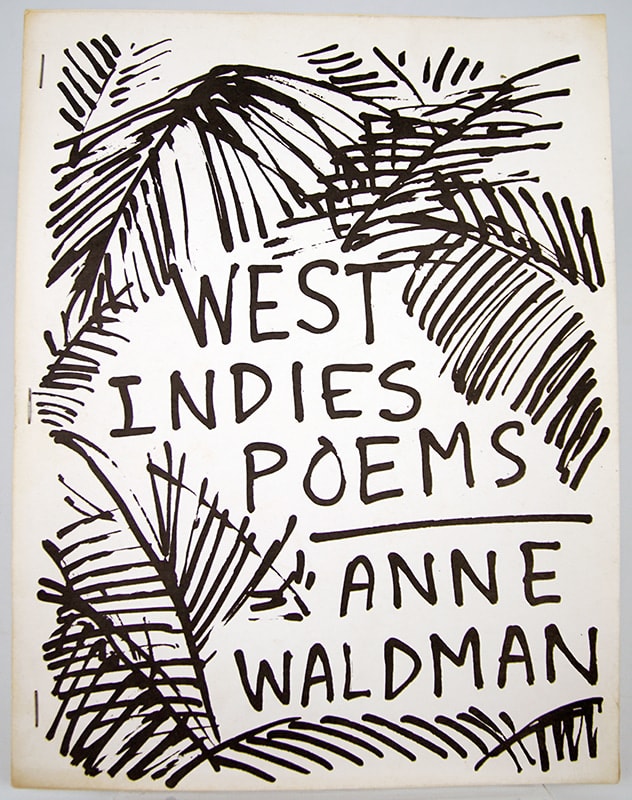 WEST
INDIES
POEMS
ANNE
WALDMAN